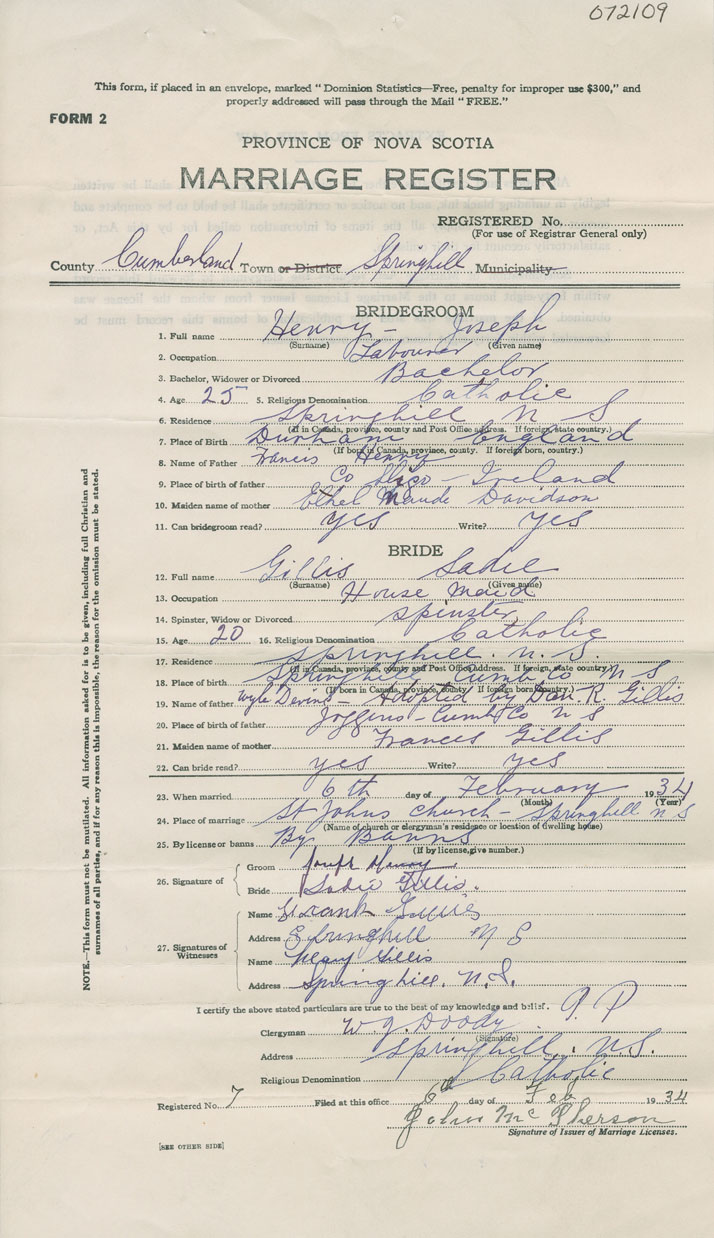 072109
This form, if placed in an envelope, marked "Dominion Statistics—Free, penalty for improper use $300," and
properly addressed will pass through the Mail "FREE."
FORM 2
PROVINCE OF NOVA SCOTIA
MARRIAGE REGISTER
REGISTERED No.
(For use of Registrar General only)
County Cumberland Town or District Springhill Municipality
BRIDEGROOM
1. Full name Henry - Joseph
(Surname) (Given name)
2. Occupation Labourer
3. Bachelor, Widower or Divorced Bachelor
4. Age 25 5. Religious Denomination Catholic
6. Residence Springhill N S
(If in Canada, province, county and Post Office address. If foreign, state country.)
7. Place of Birth Durham England
(If born in Canada, province, county. If foreign born, country.)
8. Name of Father Francis Henry
9. Place of birth of father Co Sligo - Ireland
10. Maiden name of mother Ethel Maude Davidson
11. Can bridegroom read? yes Write? yes
BRIDE
12. Full name Gillis Sadie
(Surname) (Given name)
13. Occupation House Maid
14. Spinster, Widow or Divorced Spinster
15. Age 20 16. Religious Denomination Catholic
17. Residence Springhill. N. S.
(If in Canada, province, county and Post Office address. If foreign, state country.)
18. Place of birth Springhill Cumb Co N S
(If born in Canada, province, county If foreign born, country.)
19. Name of father - Adopted by Dan R. Gillis
20. Place of birth of father Joggins - Cumb Co N S
21. Maiden name of mother Frances Gillis
22. Can bride read? yes Write? yes
23. When married 6th day of February 1934
(Month) (Year)
24. Place of marriage St Johns church - Springhill N S
(Name of church or clergyman's residence or location of dwelling house)
25. By license or banns By Banns
(If by license, give number.)
26. Signature of
Groom Joseph Henry
Bride Sadie Gillis.
27. Signatures of Witnesses
Name Frank
Address Springhill N S
Name Mary Gillis
Address Springhill. N. S.
I certify the above stated particulars are true to the best of my knowledge and belief. P. P
Clergyman W. J. Doody
(Signature)
Address Springhill. N. S.
Religious Denomination Catholic
Registered No. 7 Filed at this office 6th day of Feb 1934
John McPherson
Signature of Issuer of Marriage Licenses.
[SEE OTHER SIDE]
NOTE.—This form must not be mutilated. All information asked for is to be given, including full Christian and
surnames of all parties, and if for any reason this is impossible, the reason for the omission must be stated.